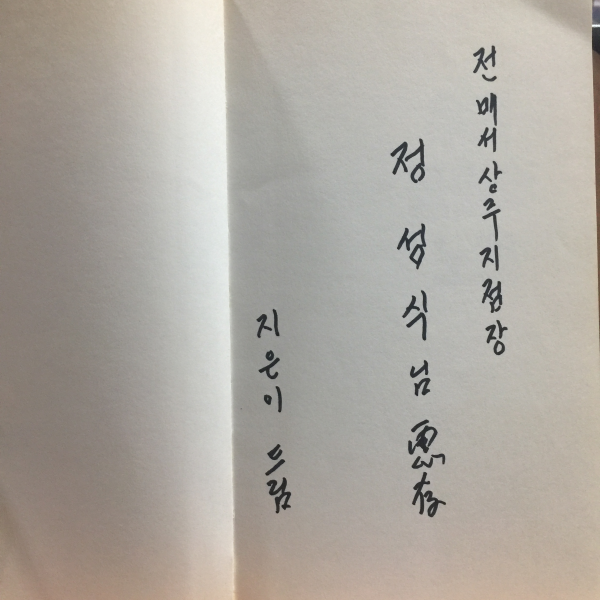 전 매서상주지점장
정성식님 惠存
지은이 드림